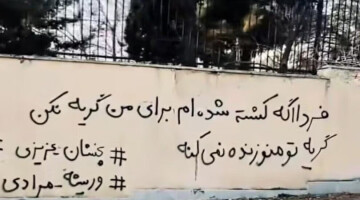 فردا اگه کشته شده ام برای من گریه نکن
گریه تو منو زنده نمی کنه
# چشان عزیزی
# وریشه_مرادی